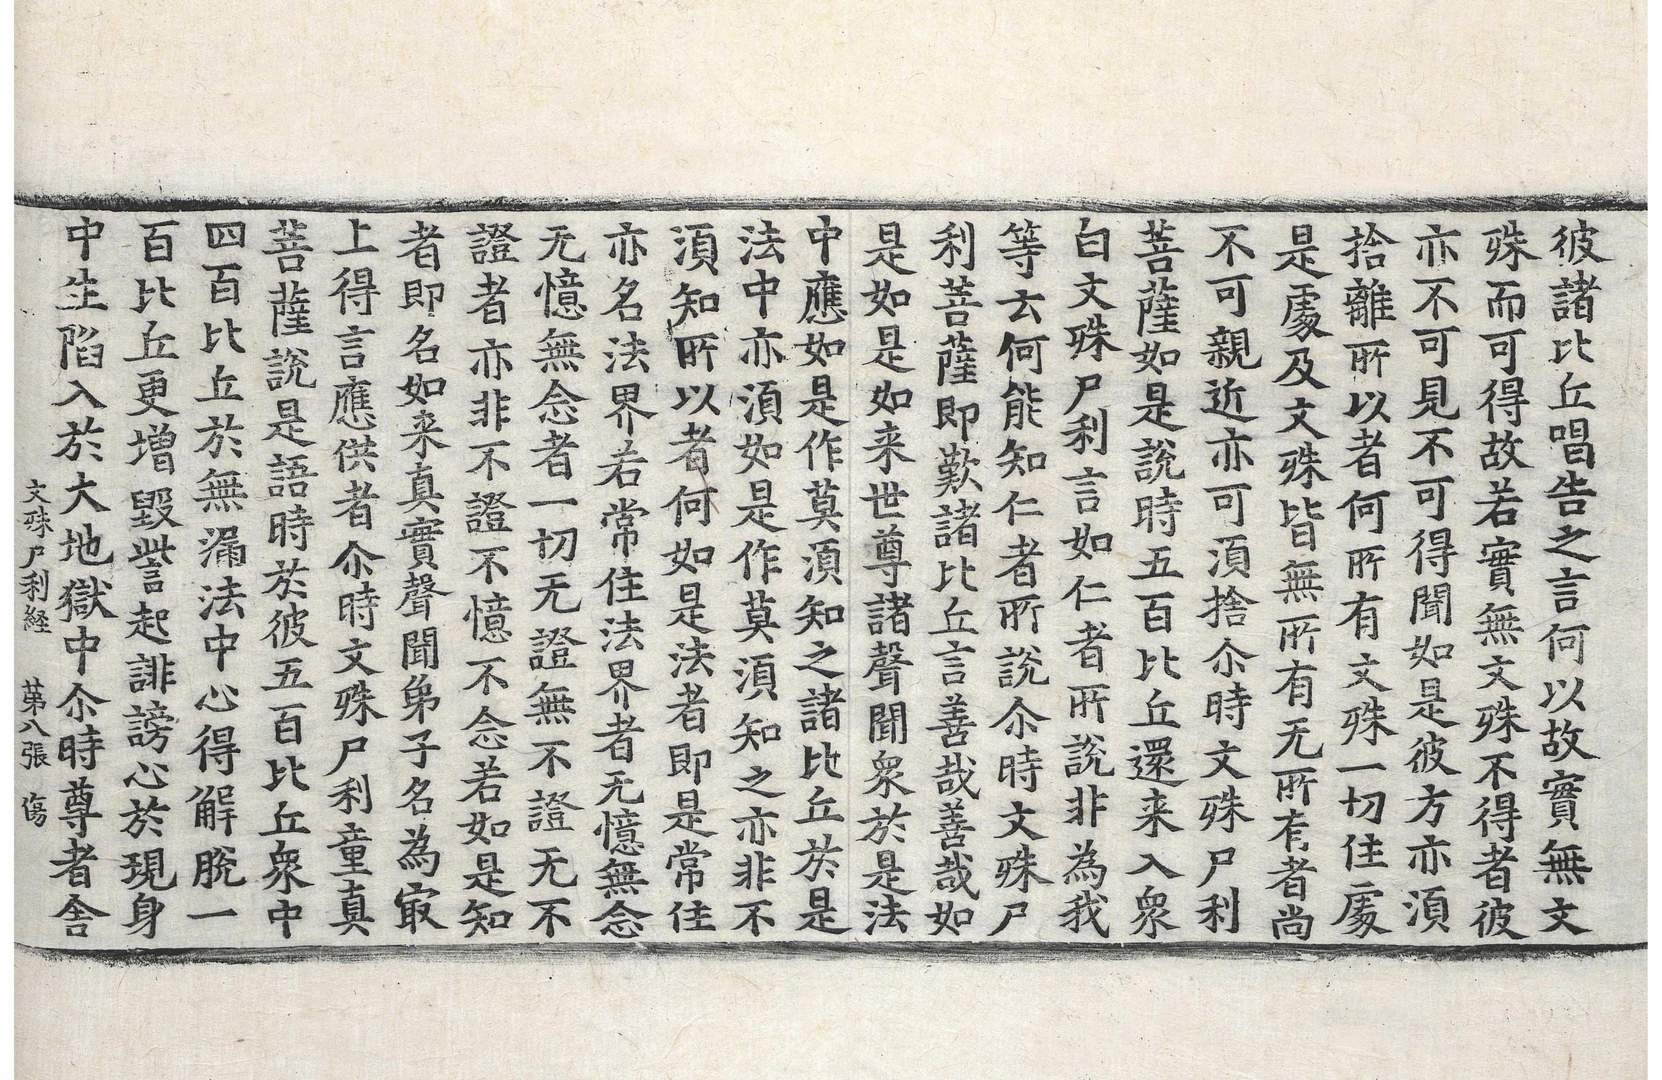 彼諸比丘唱告之言何以故實無文
殊而可得故若實無文殊不得者彼
亦不可見不可得聞如是彼方亦須
捨離所以者何所有文殊一切住處
是處及文殊皆無所有无所有者尚
不可親近亦可須捨尒時文殊尸利
菩薩如是說時五百比丘還来入衆
白文殊尸利言如仁者所說非為我
等云何能知仁者所說尒時文殊尸
利菩薩即歎諸比丘言善哉善哉如
是如是如来世尊諸聲聞衆於是法
中應如是作莫須知之諸比丘於是
法中亦須如是作莫須知之亦非不
須知所以者何如是法者即是常住
亦名法界若常住法界者无憶無念
无憶無念者一切无證無不證无不
證者亦非不證不憶不念若如是知
者即名如来真實聲聞弟子名為㝡
上得言應供者尒時文殊尸利童真
菩薩說是語時於彼五百比丘衆中
四百比丘於無漏法中心得解脫一
百比丘更增毀呰起誹謗心於現身
中生陷入於大地獄中尒時尊者舍
文殊尸利経　第八張　傷